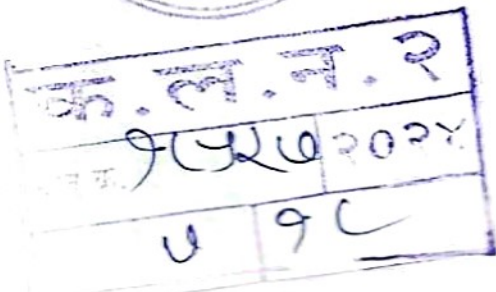 क.ल.न. २
१८५२७ २०२४
१८